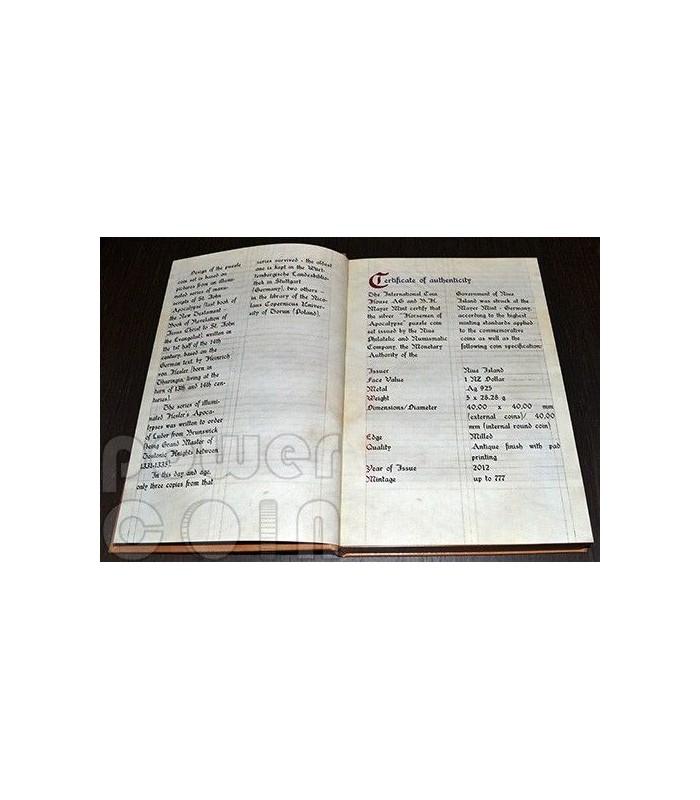 Design of the puzzle
coin set is based on
pictures from an illumi-
nated series of manu-
scripts of St. John
Apocalypse (last book of
the New Testament -
Book of Revelation of
Jesus Christ to St. John
the Evangelist), written in
the 1st half of the 14th
century, based on the
German text, by Heinrich
von Hesler (born in
Thuringia, living at the
turn of 13th and 14th cen-
turies).
The series of illumi-
nated Hesler's Apoca-
lypses was written to order
of Luder from Brunswick
(being Grand Master of
Teutonic Knights between
1331-1335).
In this day and age,
only three copies from that
series survived - the oldest
one is kept in the Würt-
tembergische Landesbiblio-
thek in Stuttgart
(Germany), two others -
in the library of the Nico-
laus Copernicus Univer-
sity of Torun (Poland).
Certificate of authenticity
The International Coin
House AG and B.H.
Mayer Mint certify that
the silver "Horsemen of
Apocalypse" puzzle coin
set issued by the Niue
Philatelic and Numismatic
Company, the Monetary
Authority of the
Government of Niue
Island was struck at the
Mayer Mint - Germany,
according to the highest
minting standards applied
to the commemorative
coins as well as the
following coin specification:
Issuer Niue Island
Face Value 1 NZ Dollar
Metal Ag 925
Weight 5 x 28.28 g
Dimensions/Diameter 40,00 x 40,00 mm
(external coins)/ 40,00
mm (internal round coin)
Edge Milled
Quality Antique finish with pad
printing
Year of Issue 2012
Mintage up to 777
power
coin